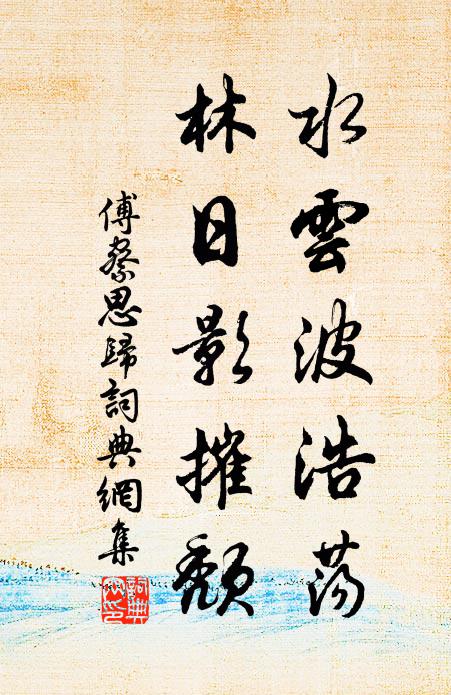 水雲波浩蕩
林日影摧頹
傅察思歸詞典網集